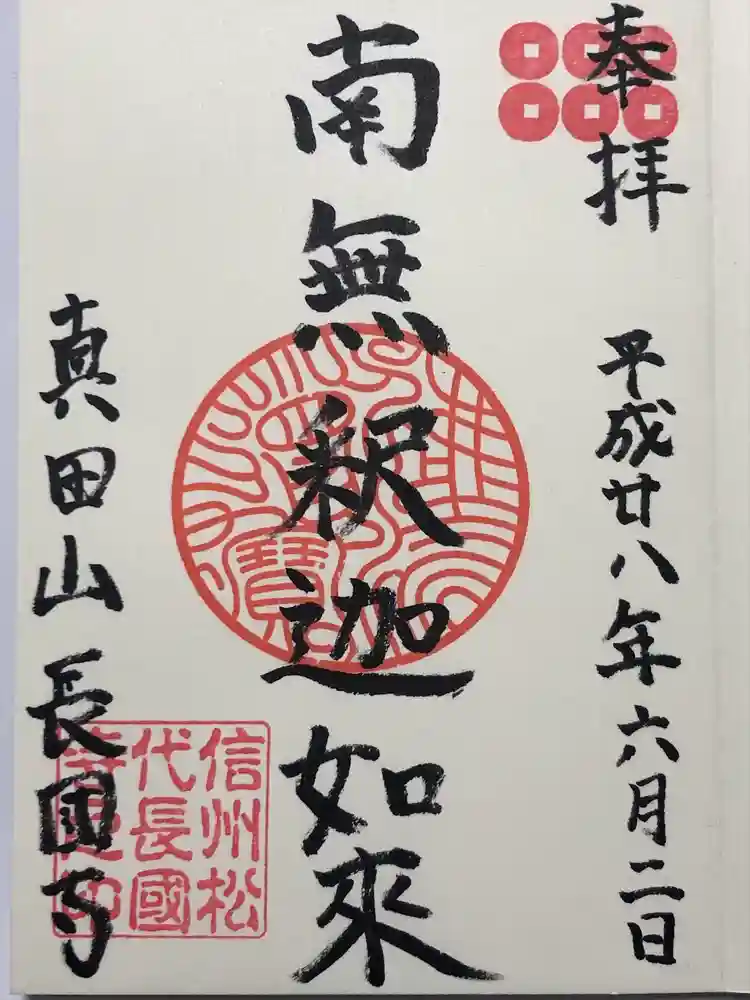 奉拝
平成廿八年六月二日
南無釈迦如來
真田山長國寺
信州松
代長國
寺之印